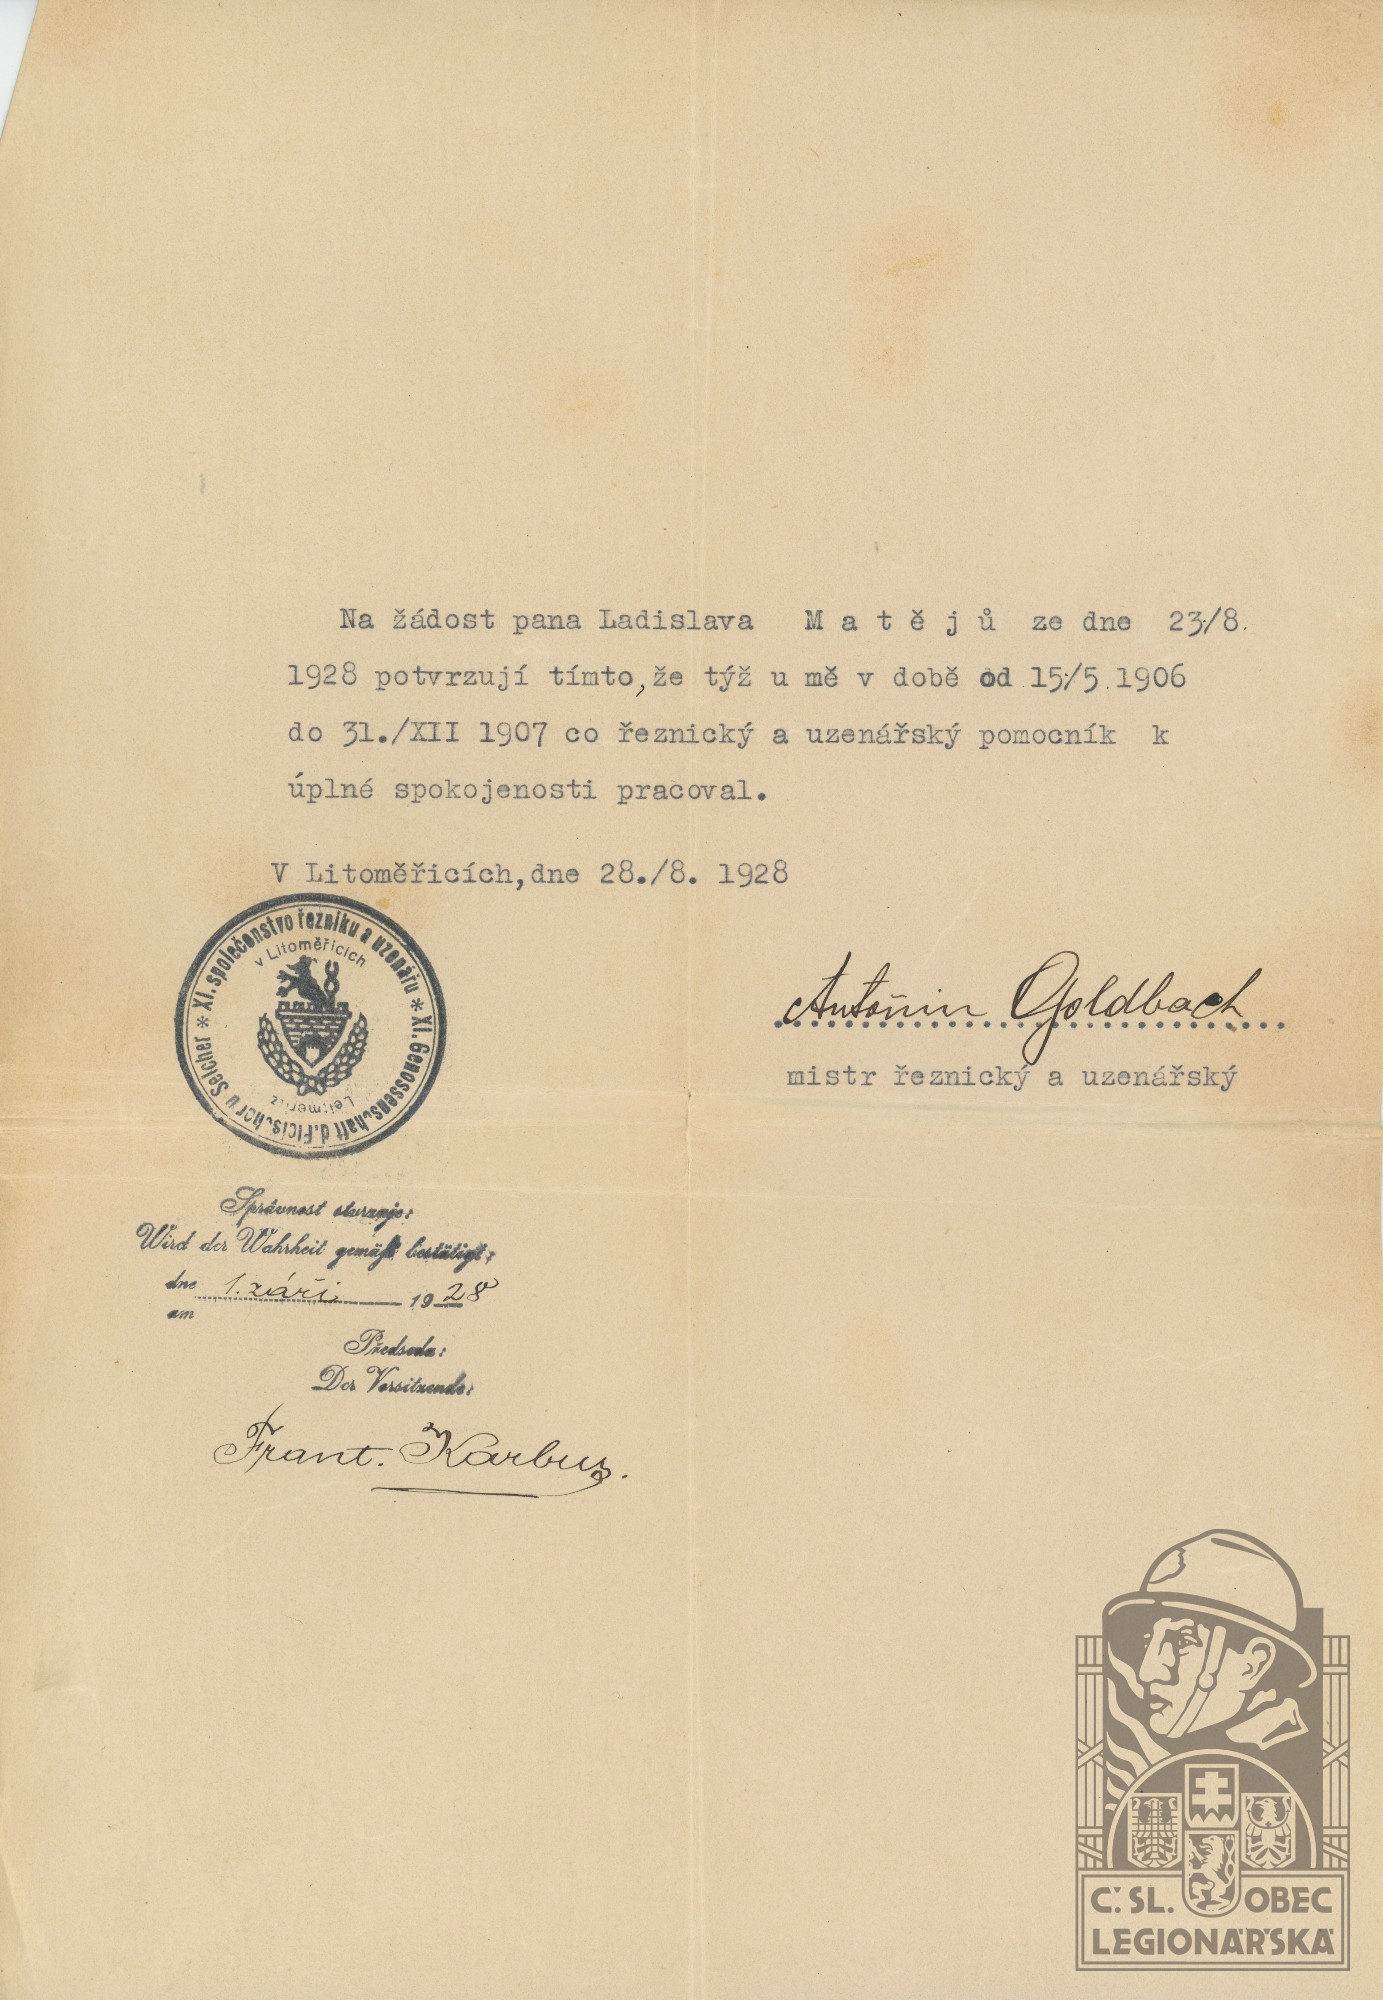 Na žádost pana Ladislava M a t ě j ů ze dne 23./8.
1928 potvrzují tímto, že týž u mě v době od 15./5. 1906
do 31./XII 1907 co řeznický a uzenářský pomocník k
úplné spokojenosti pracoval.
V Litoměřicích, dne 28./8. 1928
* XI. společenstvo řezníku a uzenářu * XI. Genossenschaft d. Fleischer u Selcher
v Litoměřicích
Leitmeritz
Antonín Goldbach
mistr řeznický a uzenářský
Správnost stvrzuje:
Wird der Wahrheit gemäß bestätigt:
dne 1. září 1928
am
Předseda:
Der Vorsitzende:
Frant. Karbus.
Č. SL. OBEC
LEGIONÁŘSKÁ